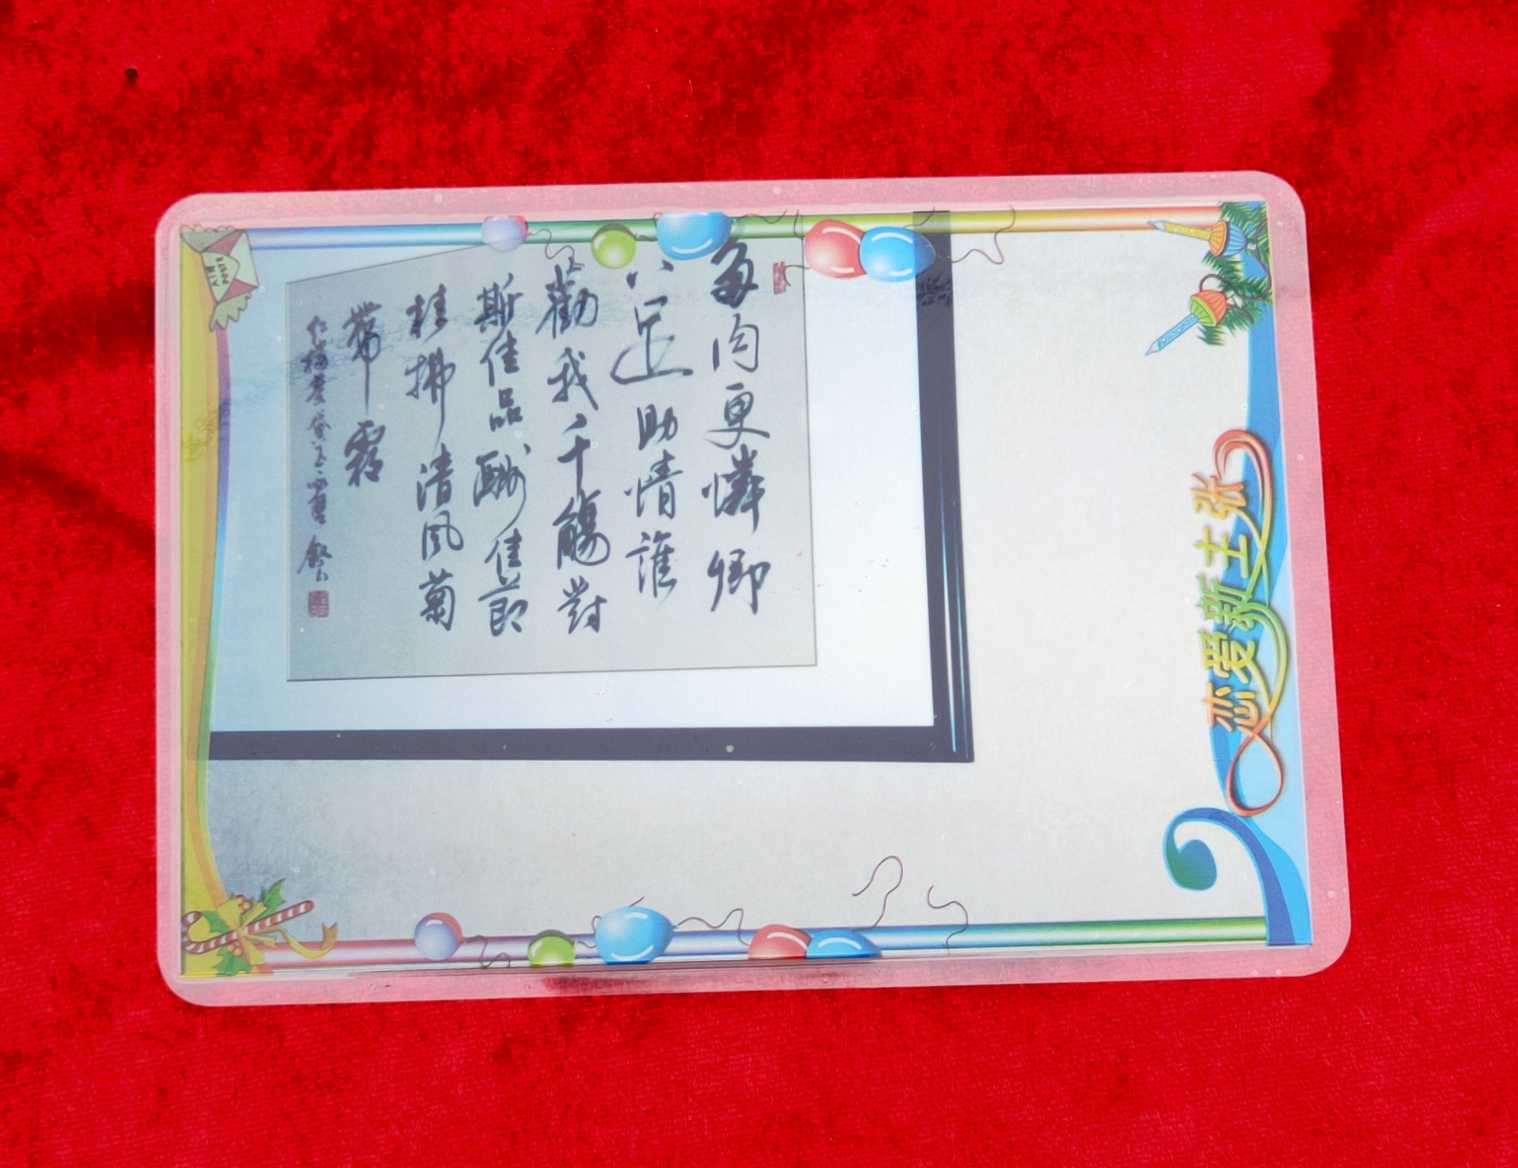 多肉更憐卿
八足助情誰
勸我千觴對
斯佳品酬佳節
桂拂清風菊
帶霜
恋爱新主张